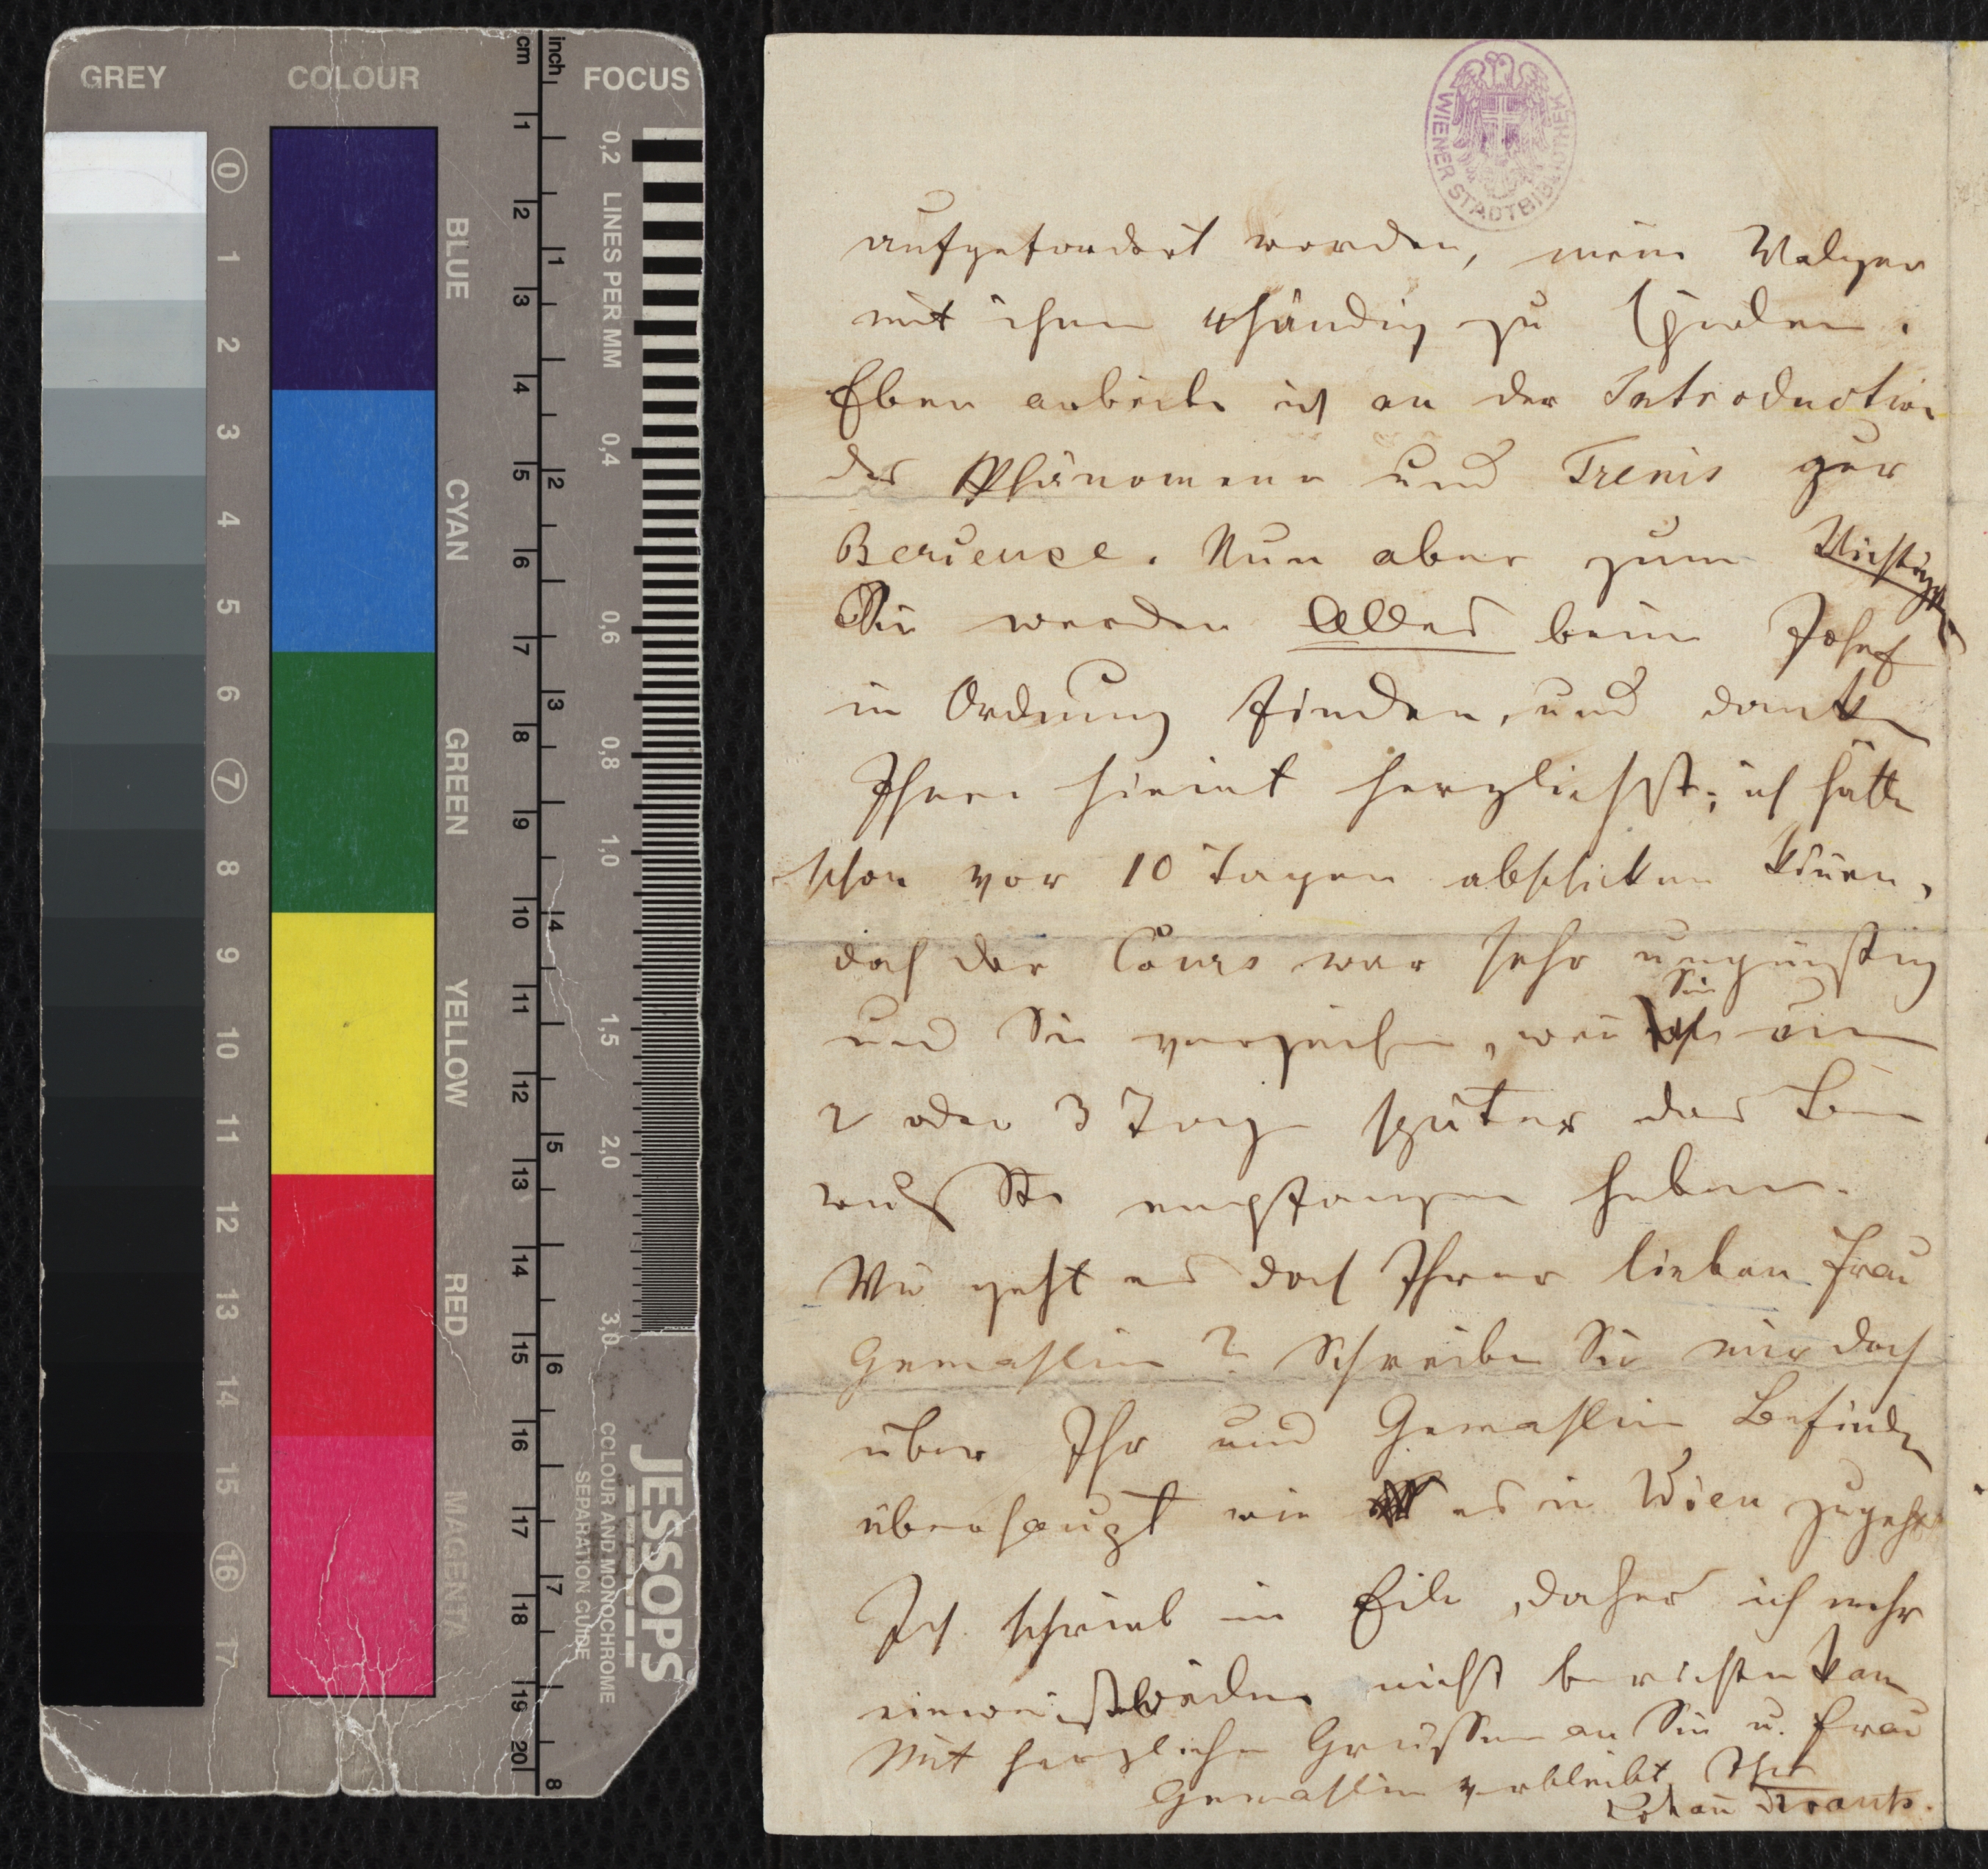 GREY COLOUR cm inch FOCUS
0 1 2 3 4 5 6 7 8 9 10 11 12 13 14 15 16 17
BLUE
CYAN
GREEN
YELLOW
RED
MAGENTA
1 2 3 4 5 6 7 8 9 10 11 12 13 14 15 16 17 18 19 20
1 2 3 4 5 6 7 8
0,2 LINES PER MM 0,4 0,6 0,8 1,0 1,5 2,0 3,0
JESSOPS
COLOUR AND MONOCHROME
SEPARATION GUIDE
WIENER STADTBIBLIOTHEK
aufgefordert worden, meine Walzer
mit ihnen 4händig zu spielen.
Eben arbeite ich an der Introduction
der Phänomene und Trenis zur
Berieuse. Nun aber zum Wichtigsten
Sie werden Alles beim Josef
in Ordnung finden, und danke
Ihnen hiemit herzlichst; ich hätte
schon vor 10 Tagen abschicken könen,
doch der Cours war sehr ungünstig
und Sie verzeihen, wen Sie um
2 oder 3 Tage später das
empfangen haben.
Wie geht es doch Ihrer lieben Frau
Gemahlin? Schreiben Sie mir doch
über Ihr und Gemahlin Befinden
überhaupt wie es in Wien zugeht
Ich schrieb in Eile, daher ich mehr
nicht berichten kan
Mit herzlichen Grüssen an Sie u. Frau
Gemahlin verbleibt Ihr
Johan Strauss.